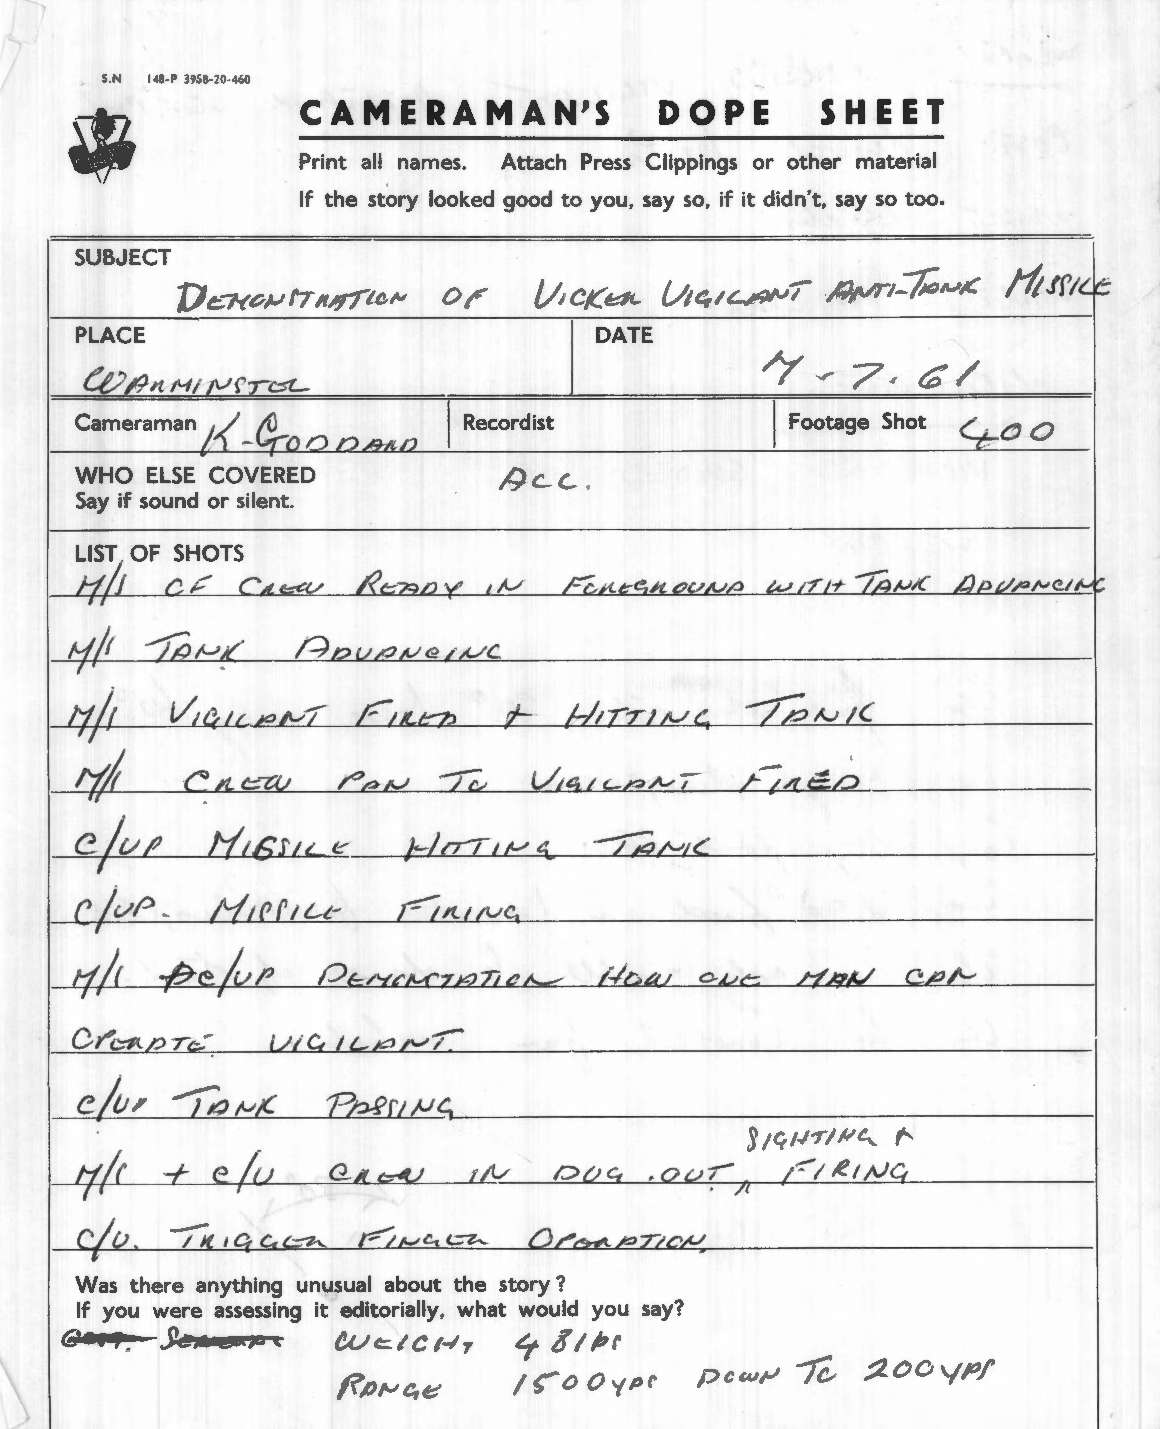 S.N 148-P 3958-20-460
CAMERAMAN'S DOPE SHEET
Print all names. Attach Press Clippings or other material
If the story looked good to you, say so, if it didn't, say so too.
SUBJECT
DEMONSTRATION OF VICKER VIGILANT ANTI-TANK MISSILE
PLACE
DATE
WARMINSTER
7.61
Cameraman K-GODDARD Recordist Footage Shot 400
WHO ELSE COVERED
ACC.
Say if sound or silent.
LIST OF SHOTS
M/S OF CREW READY IN FOREGROUND WITH TANK ADVANCING
M/S TANK ADVANCING
M/S VIGILANT FIRED + HITTING TANK
M/S CREW PAN TO VIGILANT FIRED
C/UP MISSILE HITTING TANK
C/UP. MISSILE FIRING
M/S C/UP DEMONSTATION HOW ONE MAN CAN
OPERATE VIGILANT.
C/UP TANK PASSING
SIGHTING +
M/S + C/U CREW IN DUG.OUT FIRING
C/U. TRIGGER FINGER OPERATION.
Was there anything unusual about the story?
If you were assessing it editorially, what would you say?
WEIGHT 48lbs
RANGE 1500YDS DOWN TO 200YDS